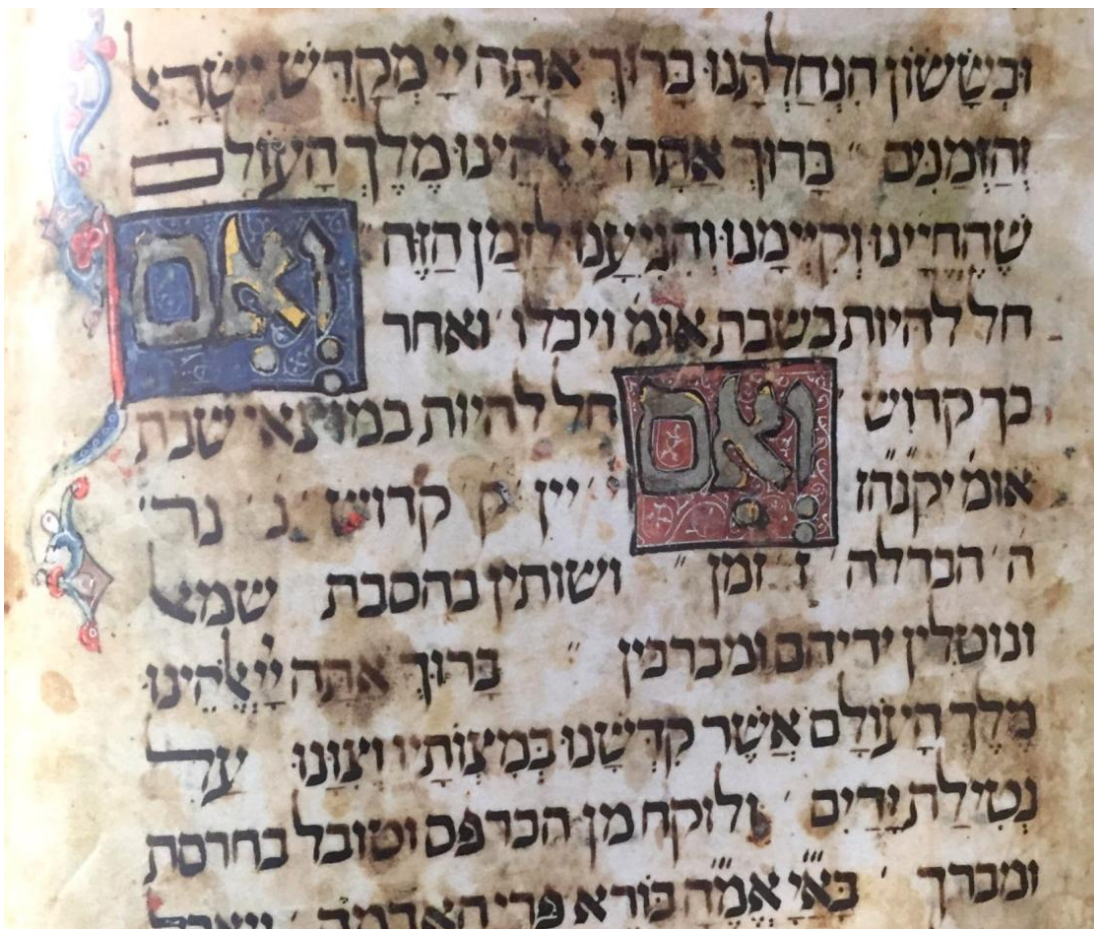 וּבְשָׂשׂוֹן הִנְחַלְתָּנוּ בָּרוּךְ אַתָּה יְיָ מְקַדֵּשׁ יִשְׂרָאֵל
וְהַזְּמַנִּים ״ בָּרוּךְ אַתָּה יְיָ אֱלֹהֵינוּ מֶלֶךְ הָעוֹלָם
שֶׁהֶחֱיָינוּ וְקִיְּימָנוּ וְהִגִּיעָנוּ לַזְּמַן הַזֶּה ״ וְאִם
חל להיות בשבת אומ׳ ויכלו ׳ ואחר
כך קדוש ׳ וְאִם חל להיות במוצאי שבת
אומ׳ יקנה״ז י׳ יין ק׳ קדוש נ׳ נר ׳
ה׳ הבדלה ז׳ זמן ״ ושותין בהסבת שמאל
ונוטלין ידיהם ומברכין ״ בָּרוּךְ אַתָּה יְיָ אֱלֹהֵינוּ
מֶלֶךְ הָעוֹלָם אֲשֶׁר קִדְּשָׁנוּ בְּמִצְוֹתָיו וְצִוָּנוּ עַל
נְטִילַת יָדַיִם ׳ ולוקח מן הכרפס וטובל בחרוסת
ומברך ׳ בָּאֵ״יִ אֱמֶ״הָ בּוֹרֵא פְּרִי הָאֲדָמָה ׳ ויאכל